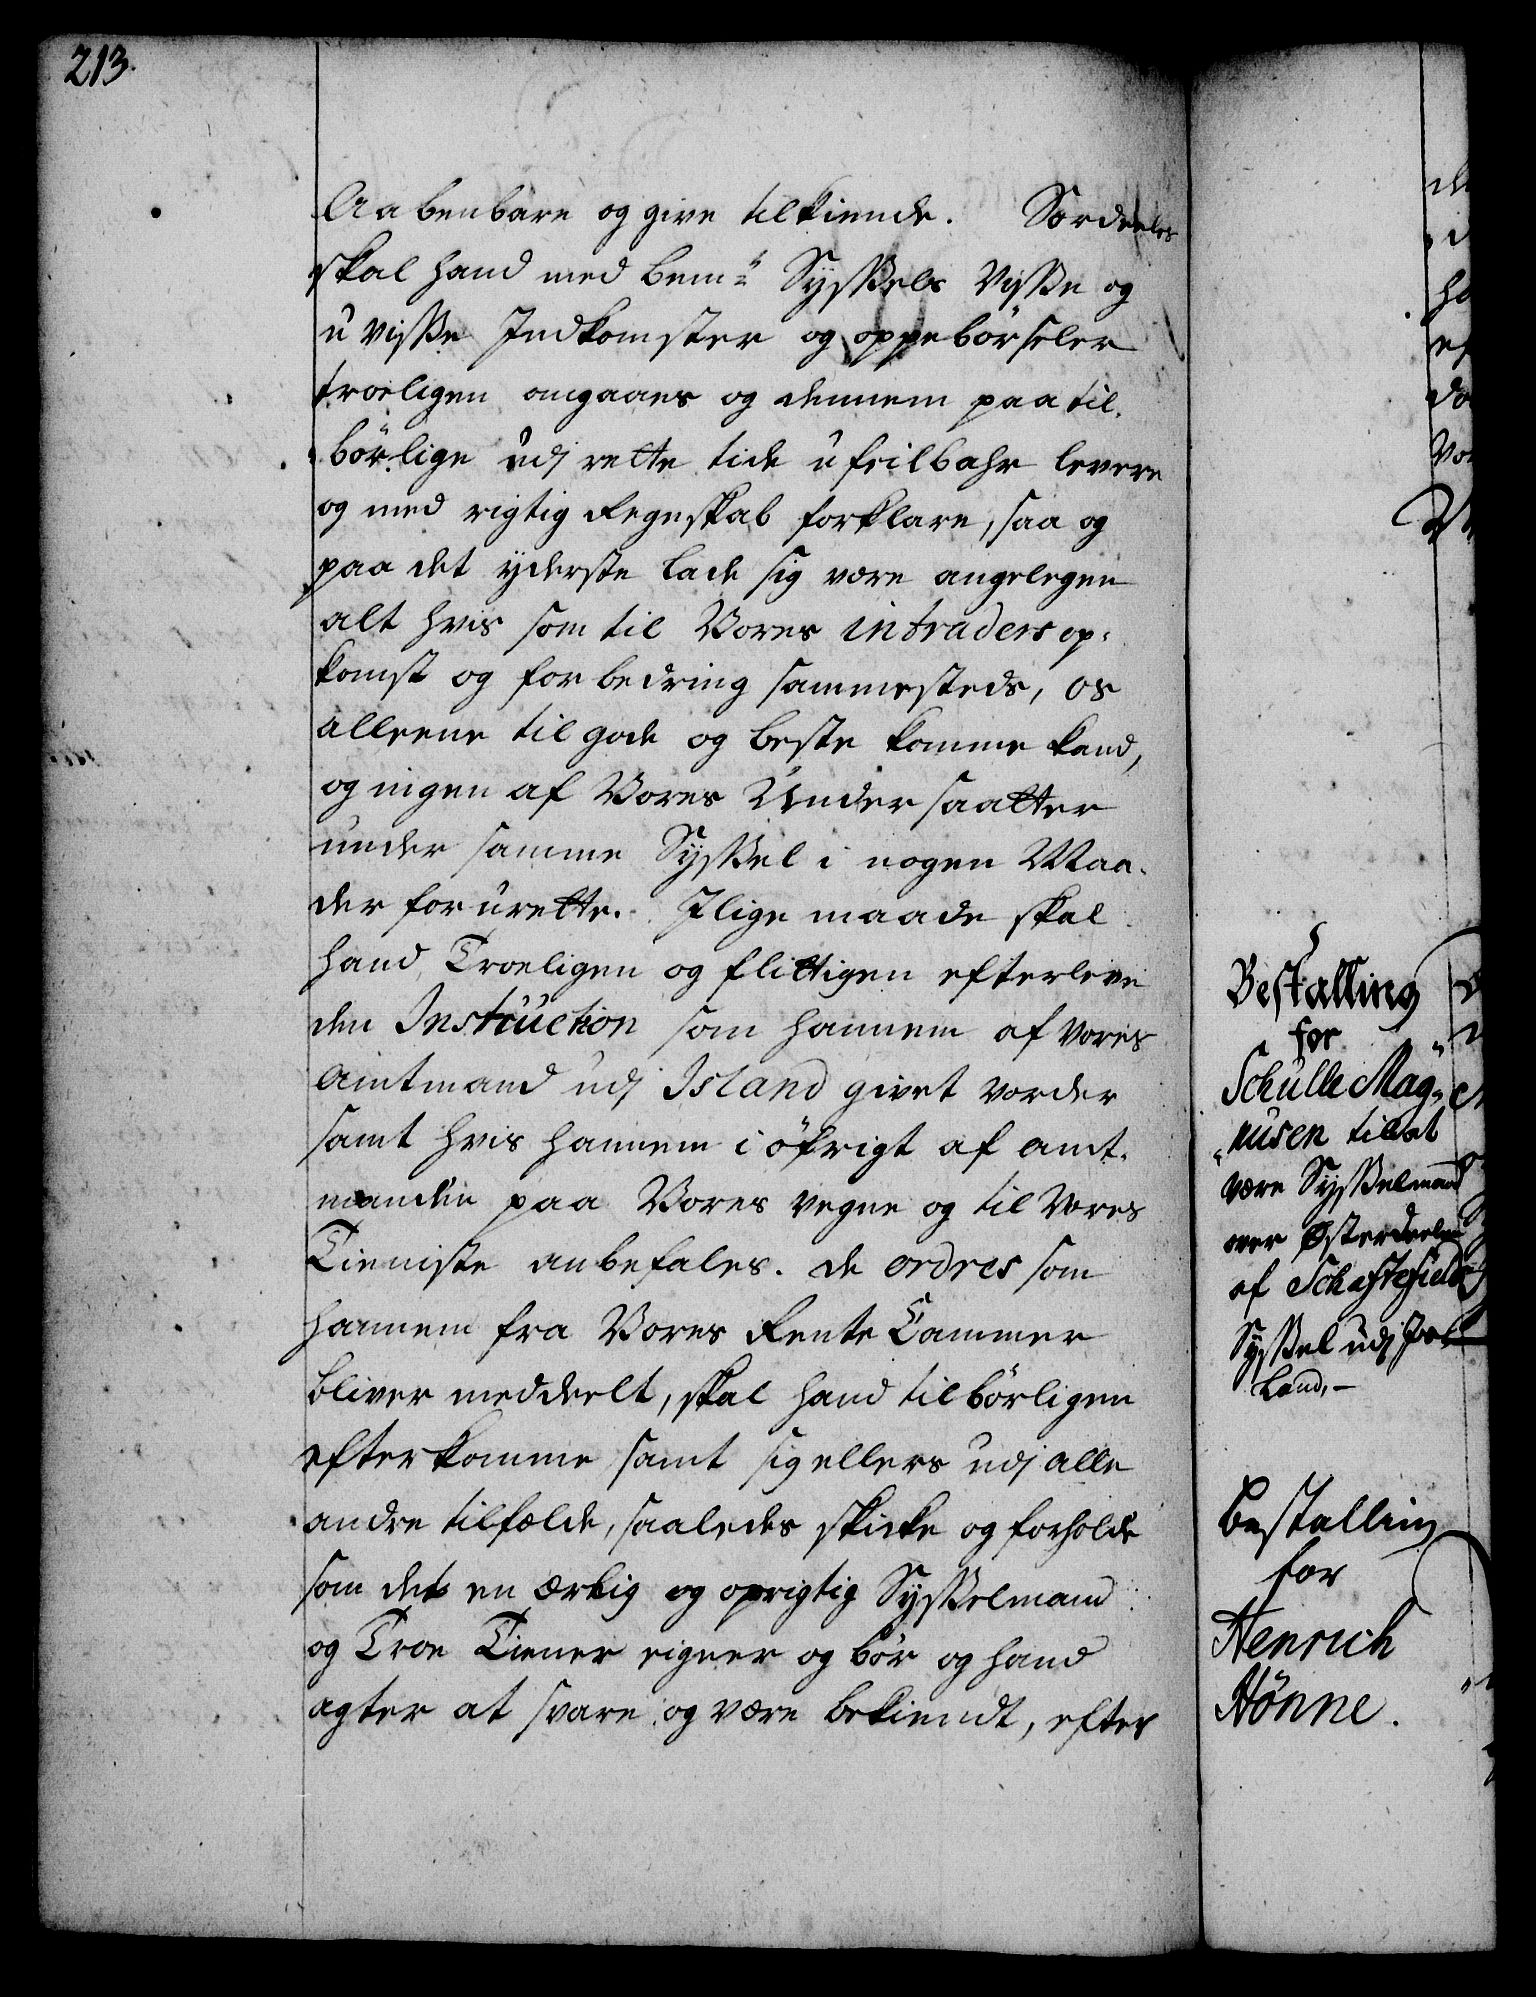 213.
Aabenbare og give tilkiende. Særdeeles
skal hand med bemte Sysßels Visse og
u visse Indkomster og oppebörseler
troeligen omgaaes og dennem paa til-
börlige udj rette tide ufeilbahr levere
og med rigtig Regnskab forklare, saa og
paa det yderste lade sig være angelegen
alt hvis som til Vores intraders op-
komst og forbedring sammesteds, os
alleene til gode og beste komme kand,
og ingen af Vores Undersaatter
under samme Sysßel i nogen Maa-
der forurette. Ilige maade skal
hand Troeligen og flittigen efterleve
den Instruction som hannem af vores
Amtmand udj Island givet vorder
samt hvis hannem i öfrigt af amt-
manden paa Vores vegne og til Vores
Tieniste anbefales. de ordres som
hannem fra Vores Rente Cammer
bliver meddeelt, skal hand tilbörligen
efterkomme samt sig ellers udj alle
andre tilfælde, saaledes skicke og forholde
som det en ærlig og oprigtig Sysßelmand
og Troe Tiener eigner og bör og hand
agter at svare og være bekiendt, efter
Bestalling
for
Schulle Mag-
nusen til at
være Sysßelmand
over Østerdeelen
af Schaftefields
Sysßel udj Jis
land,-
Bestalling
for
Henrich
Hönne.